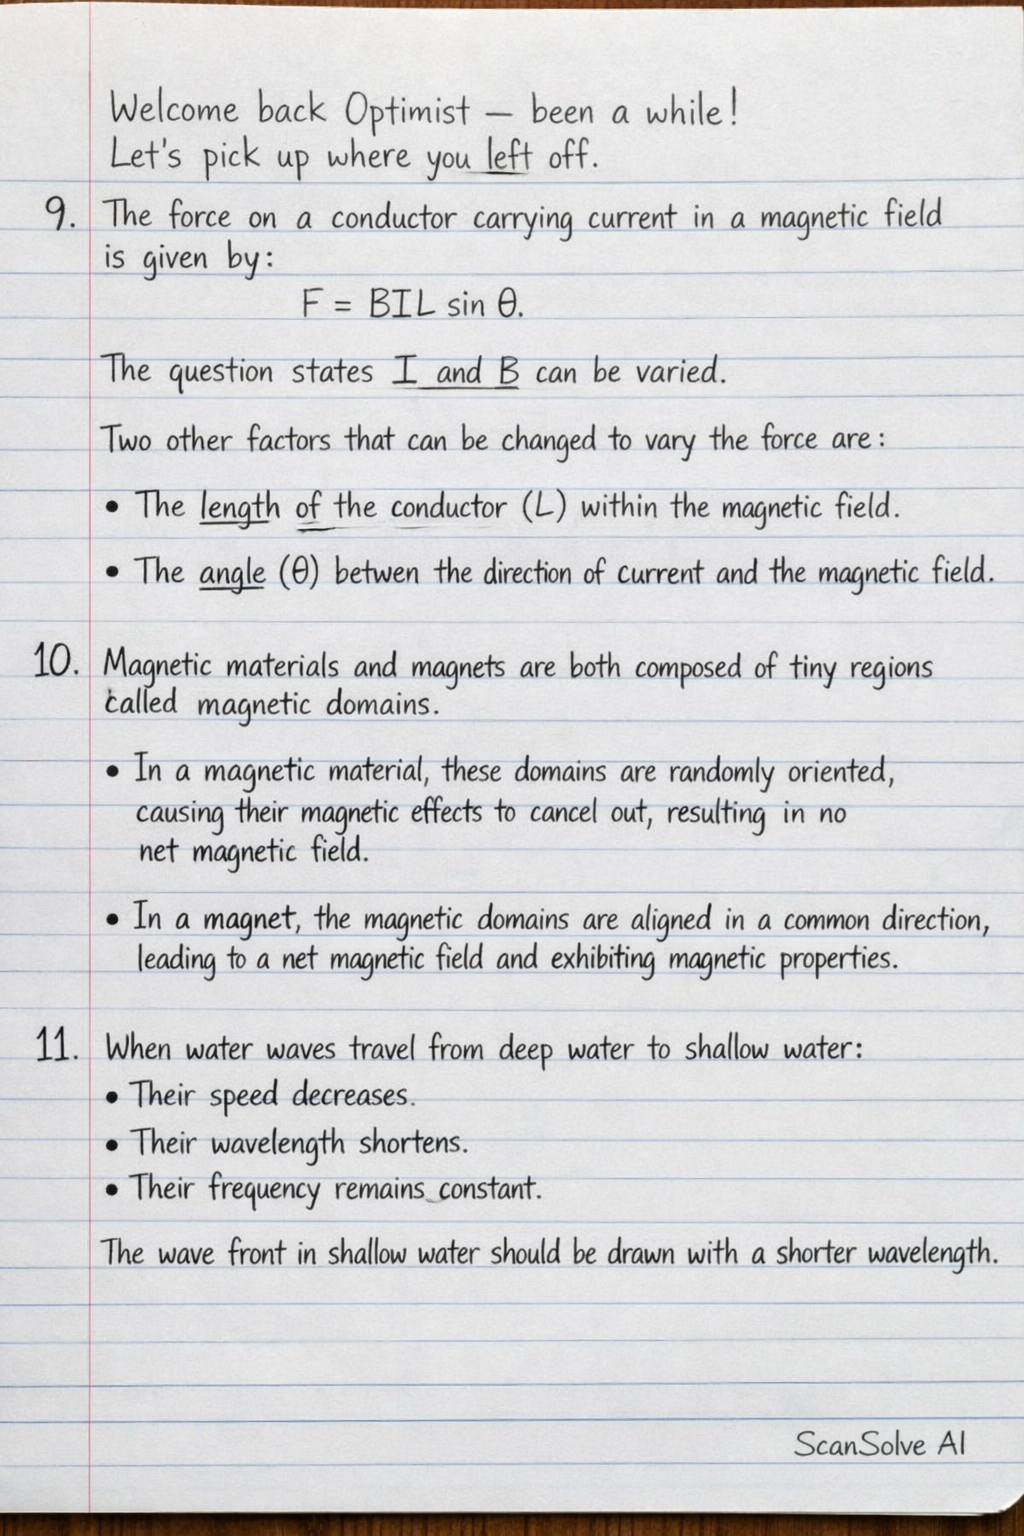 Welcome back Optimist — been a while!
Let's pick up where you left off.
9. The force on a conductor carrying current in a magnetic field
is given by:
F = BIL sin θ.
The question states I and B can be varied.
Two other factors that can be changed to vary the force are:
• The length of the conductor (L) within the magnetic field.
• The angle (θ) betwen the direction of current and the magnetic field.
10. Magnetic materials and magnets are both composed of tiny regions
called magnetic domains.
• In a magnetic material, these domains are randomly oriented,
causing their magnetic effects to cancel out, resulting in no
net magnetic field.
• In a magnet, the magnetic domains are aligned in a common direction,
leading to a net magnetic field and exhibiting magnetic properties.
11. When water waves travel from deep water to shallow water:
• Their speed decreases.
• Their wavelength shortens.
• Their frequency remains constant.
The wave front in shallow water should be drawn with a shorter wavelength.
ScanSolve AI